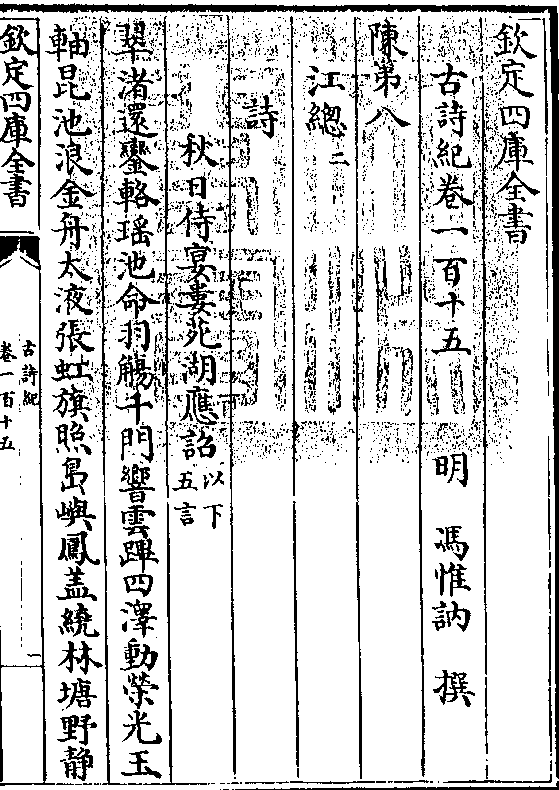 欽定四庫全書
古詩紀卷一百十五　明　馮惟訥　撰
陳第八
江總二
詩
秋日侍宴婁苑湖應詔以下五言
翠渚還鑾輅瑶池命羽觴千門響雲蹕四澤動榮光玉
軸昆池浪金舟太液張虹旗照島嶼鳳蓋繞林塘野静
欽定四庫全書
古詩紀
卷一百十五
一